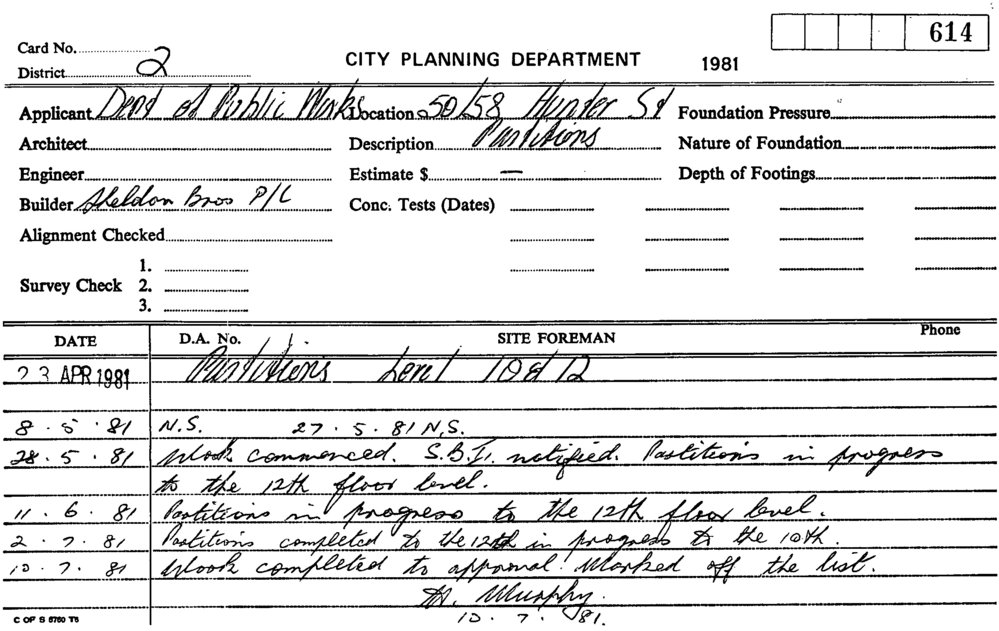 614
Card No.
District 2
CITY PLANNING DEPARTMENT 1981
Applicant Dept of Public Works Location 50/58 Hunter St Foundation Pressure
Architect Description Partitions Nature of Foundation
Engineer Estimate $ — Depth of Footings
Builder Sheldon Bros P/L Conc. Tests (Dates)
Alignment Checked
1.
Survey Check 2.
3.
DATE D.A. No. SITE FOREMAN Phone
23 APR 1981 Partitions Level 10 & 12
8 . 5 . 81 N.S. 27 . 5 . 81 N.S.
28 . 5 . 81 Work commenced. S.B.I. notified. Partitions in progress
to the 12th floor level.
11 . 6 . 81 Partitions in progress to the 12th floor level.
2 . 7 . 81 Partitions completed to the 12th in progress to the 10th.
10 . 7 . 81 Work completed to approval. Marked off the list.
Murphy.
10 . 7 . 81.
C OF S 5760 T5